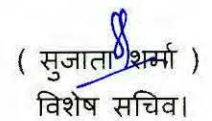 ( सुजाता शर्मा )
विशेष सचिव।